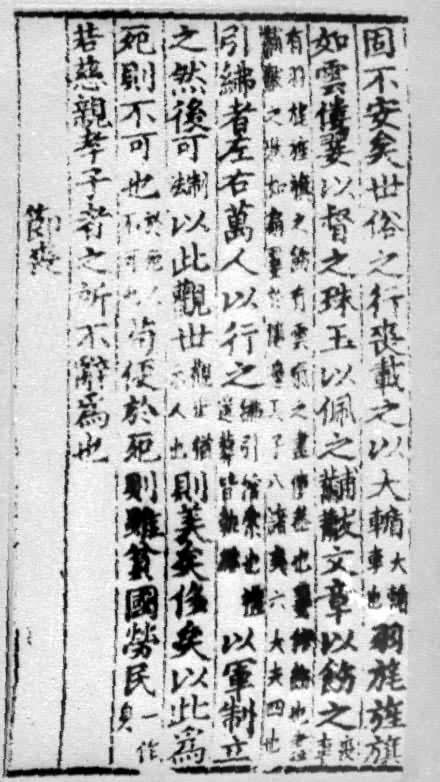 固不安矣世俗之行喪載之以大輴大輴車也羽旄旌旗
如雲僂翣以督之珠玉以佩之黼黻文章以飭之喪車
有羽旄旌旗之飾有雲氣之畫僂蓋也翣棺飾也畫
黼黻之狀如扇翣於僂邊天子八諸侯六大夫四也
引紼者左右萬人以行之紼引棺索也禮送葬皆執紼以軍制立
之然後可制法以此觀世觀世猶示人也則美矣侈矣以此為
死則不可也於死人不可也苟便於死則雖貧國勞民一作身
若慈親孝子者之所不辭為也
節喪